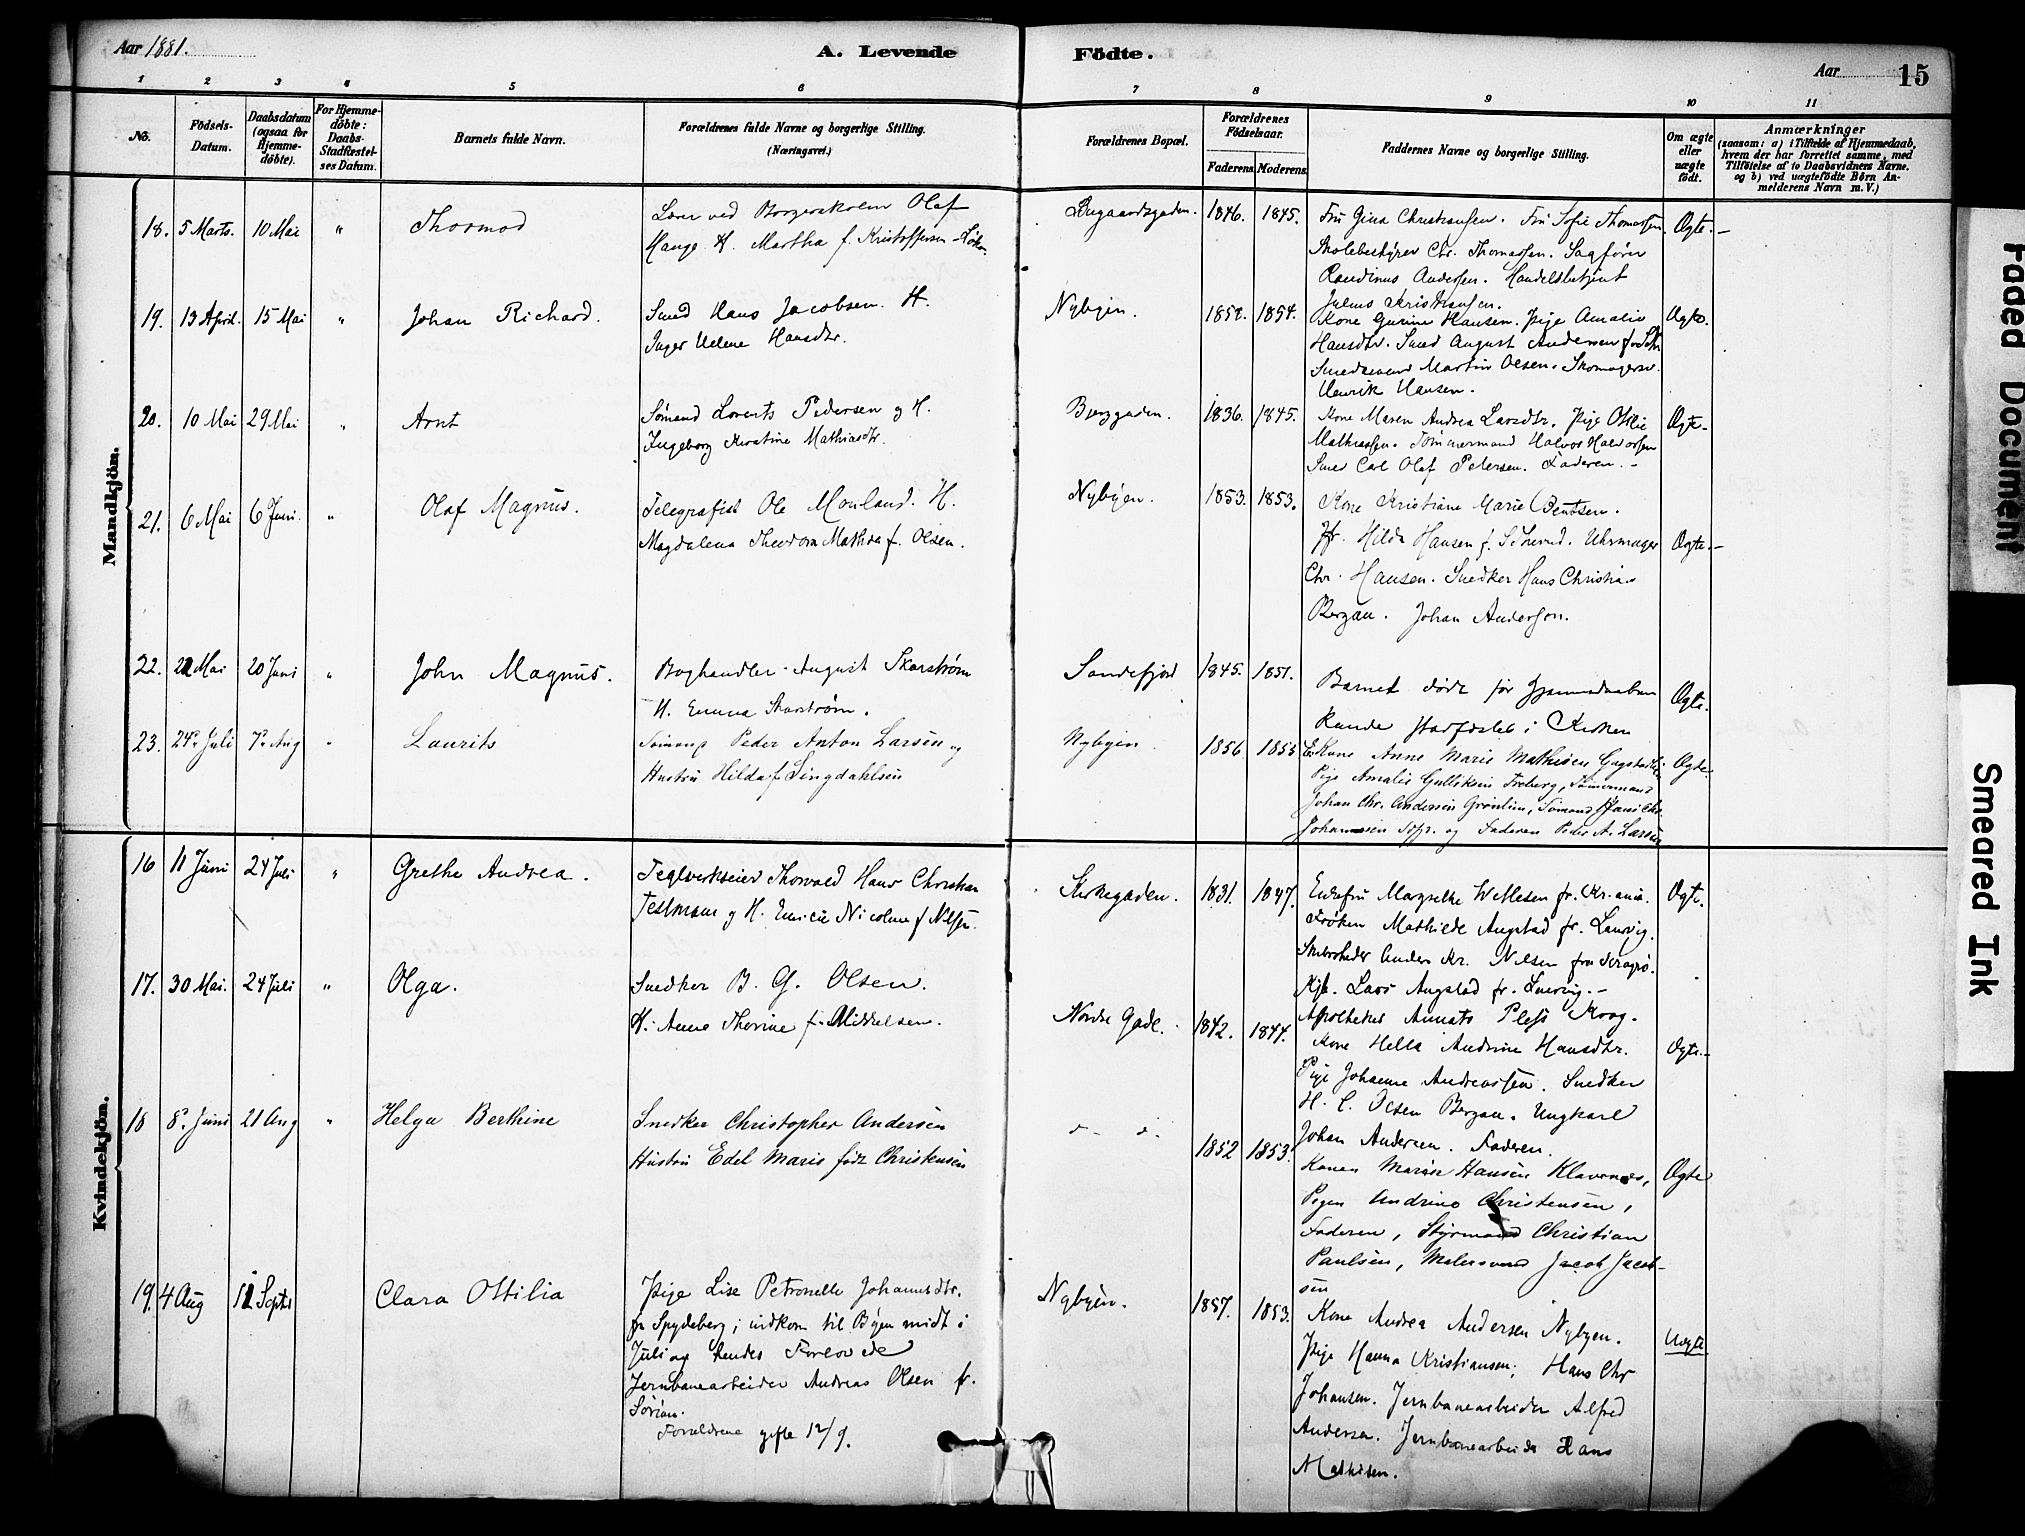 Aar 1881.
A. Levende Födte.
Aar
15
1 2 3 4 5 6 7 8 9 10 11
No.
Födsels-Datum.
Daabsdatum (ogsaa for Hjemme-döbte).
For Hjemme-döbte: Daabs-Stadfæstel-ses Datum.
Barnets fulde Navn.
Forældrenes fulde Navne og borgerlige Stilling.
(Næringsvei.)
Forældrenes Bopæl.
Forældrenes Födselsaar.
Faderens. Moderens.
Faddernes Navne og borgerlige Stilling.
Om ægte eller uægte födt.
Anmærkninger
(saasom: a) i Tilfælde af Hjemmedaab, hvem der har forrettet samme, med Tilföielse af to Daabsvidners Navne. og b) ved uægtefödte Börn Anmelderens Navn m. V.)
Mandkjön.
18. 5 Marts. 10 Mai " Thormod
Lærer ved Borgerskolen Olaf
Hauge H. Martha f. Kristoffersen
1846. 1845.
Fru Gina Christensen. Fru Sofie Thomassen.
Skolebestyrer Chr. Thomassen. Sagfører
Randinus Andersen. Handelsbetjent
Julius Kristiansen.
Ægte.
19. 13 April. 15 Mai " Johan Richard.
Smed Hans Jacobsen. H.
Inger Helene Hansdtr.
Nybyen. 1852. 1854.
Kone Gurine Hansen. Pige Amalie
Hansdtr. Smed August Andersen
Smedsvend Martin Olsen. Skomagersv.
Henrik Hansen.
Ægte.
20. 10 Mai 29 Mai " Arnt
Sømand Lorents Pedersen og H.
Ingeborg Kirstine Mathiasdtr.
Bjerggaden. 1836. 1845.
Kone Maren Andrea Larsdtr. Pige Otilie
Mathiassen. Tømmermand Halvor Halvorsen
Smed Carl Olaf Petersen. Faderen.
Ægte.
21. 6 Mai 6 Juni. " Olaf Magnus.
Telegrafist Ole Mouland. H.
Magdalena Theodora Mathea f. Olsen.
Nybyen. 1853. 1853.
Kone Kristiane Marie Bentsen.
Fr. Hilda Hansen f. Uhrmager
Chr. Hansen. Snedker Hans Christian
Bergan. Johan Anderson.
Ægte.
22. 22 Mai 20 Juni " John Magnus.
Boghandler August Skarstrøm
H. Emma Skarstrøm.
Sandefjord 1845. 1851.
Barnet døde før Hjemmedaaben
kunde stadfæstes i Kirken
Ægte.
23. 24de Juli 7de Aug " Laurits
Sømand Peder Anton Larsen og
Hustru Hilda f. Lingdahlsen
Nybyen 1856 1855
Kone Anne Marie Mathisen
Pige Amalie Gulliksen Freberg, Tømmermand
Johan Chr. Andersen Grønlien, Sømand Hans Chr.
Johannesen og Faderen Peder A. Larsen
Ægte.
Kvindekjön.
16 11 Juni 24 Juli " Grethe Andrea.
Teglverkseier Thorvald Hans Christian
Testmann og H. Nicoline f. Nilsen.
Kirkegaden. 1831. 1847.
Enkefru Margrethe Willesen fr. Kr.ania.
Frøken Mathilde Augstad fr. Laurvig.
Skibsreder Anders Kr. Nilsen fra Kragrø.
Kjbm. Lars Augstad fr. Laurvig.
Apotheker Pless Krog.
Ægte.
17. 30 Mai. 24 Juli " Olga.
Snedker B. G. Olsen.
H. Anne Thorine f. Mikkelsen.
Nordre Gade. 1842. 1844.
Kone Hella Andrine Hansdtr.
Pige Johanne Andreassen. Snedker
H. C. Olsen Bergan. Ungkarl
Johan Andersen. Faderen.
Ægte.
18 8de Juni 21 Aug " Helga Berthine
Snedker Christopher Andersen
Hustru Edel Marie født Christensen
d- d- 1852 1853.
Konen Marie Hansen Klavenes,
Pigen Andrine Christensen,
Faderen, Styrmand Christian
Paulsen, Malersvend Jacob Jacob-
sen
Ægte
19. 4 Aug 11 Septr Clara Ottilia
Pige Lise Petronelle Johannesdtr.
fr Spydeberg, indkom til Byen midt i
Juli og hendes Forlovede
Jernbanearbeider Andreas Olsen fr.
Sørum.
Forældrene gifte 12/9.
Nybyen. 1857. 1853.
Kone Andrea Andersen Nybyen.
Pige Hanna Kristiansen; Hans Chr
Johansen. Jernbanearbeider Alfred
Andersen. Jernbanearbeider Hans
Mathisen.
Uægte.
Faded Document
Smeared Ink